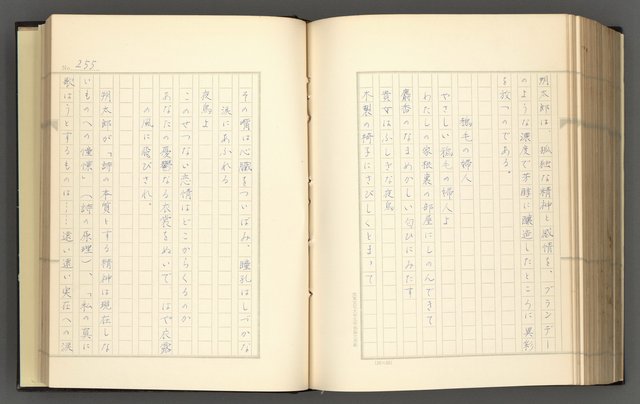 朔太郎は、孤独な精神と感情を、ブランデー
のような濃度で芳醇に醸造したところに異彩
を放つのである。
猫毛の婦人
やさしい猫毛の婦人よ
わたしの家根裏の部屋にしのんできて
麝香のなまめかしい匂ひにみたす
貴女はふしぎな夜鳥
木製の椅子にさびしくとまって
No. 255
その嘴は心臓をついばみ、瞳孔はしづかな
涙にあふれる
夜鳥よ
このせつない恋情はどこからくるのか
あなたの憂鬱なる衣裳をぬいで、はや夜露
の風に飛びされ。
朔太郎が「詩の本質とする精神は現在しな
いものへの憧憬」（詩の原理）、「私の真に
歌はうとするものは……遠い遠い実在への涙